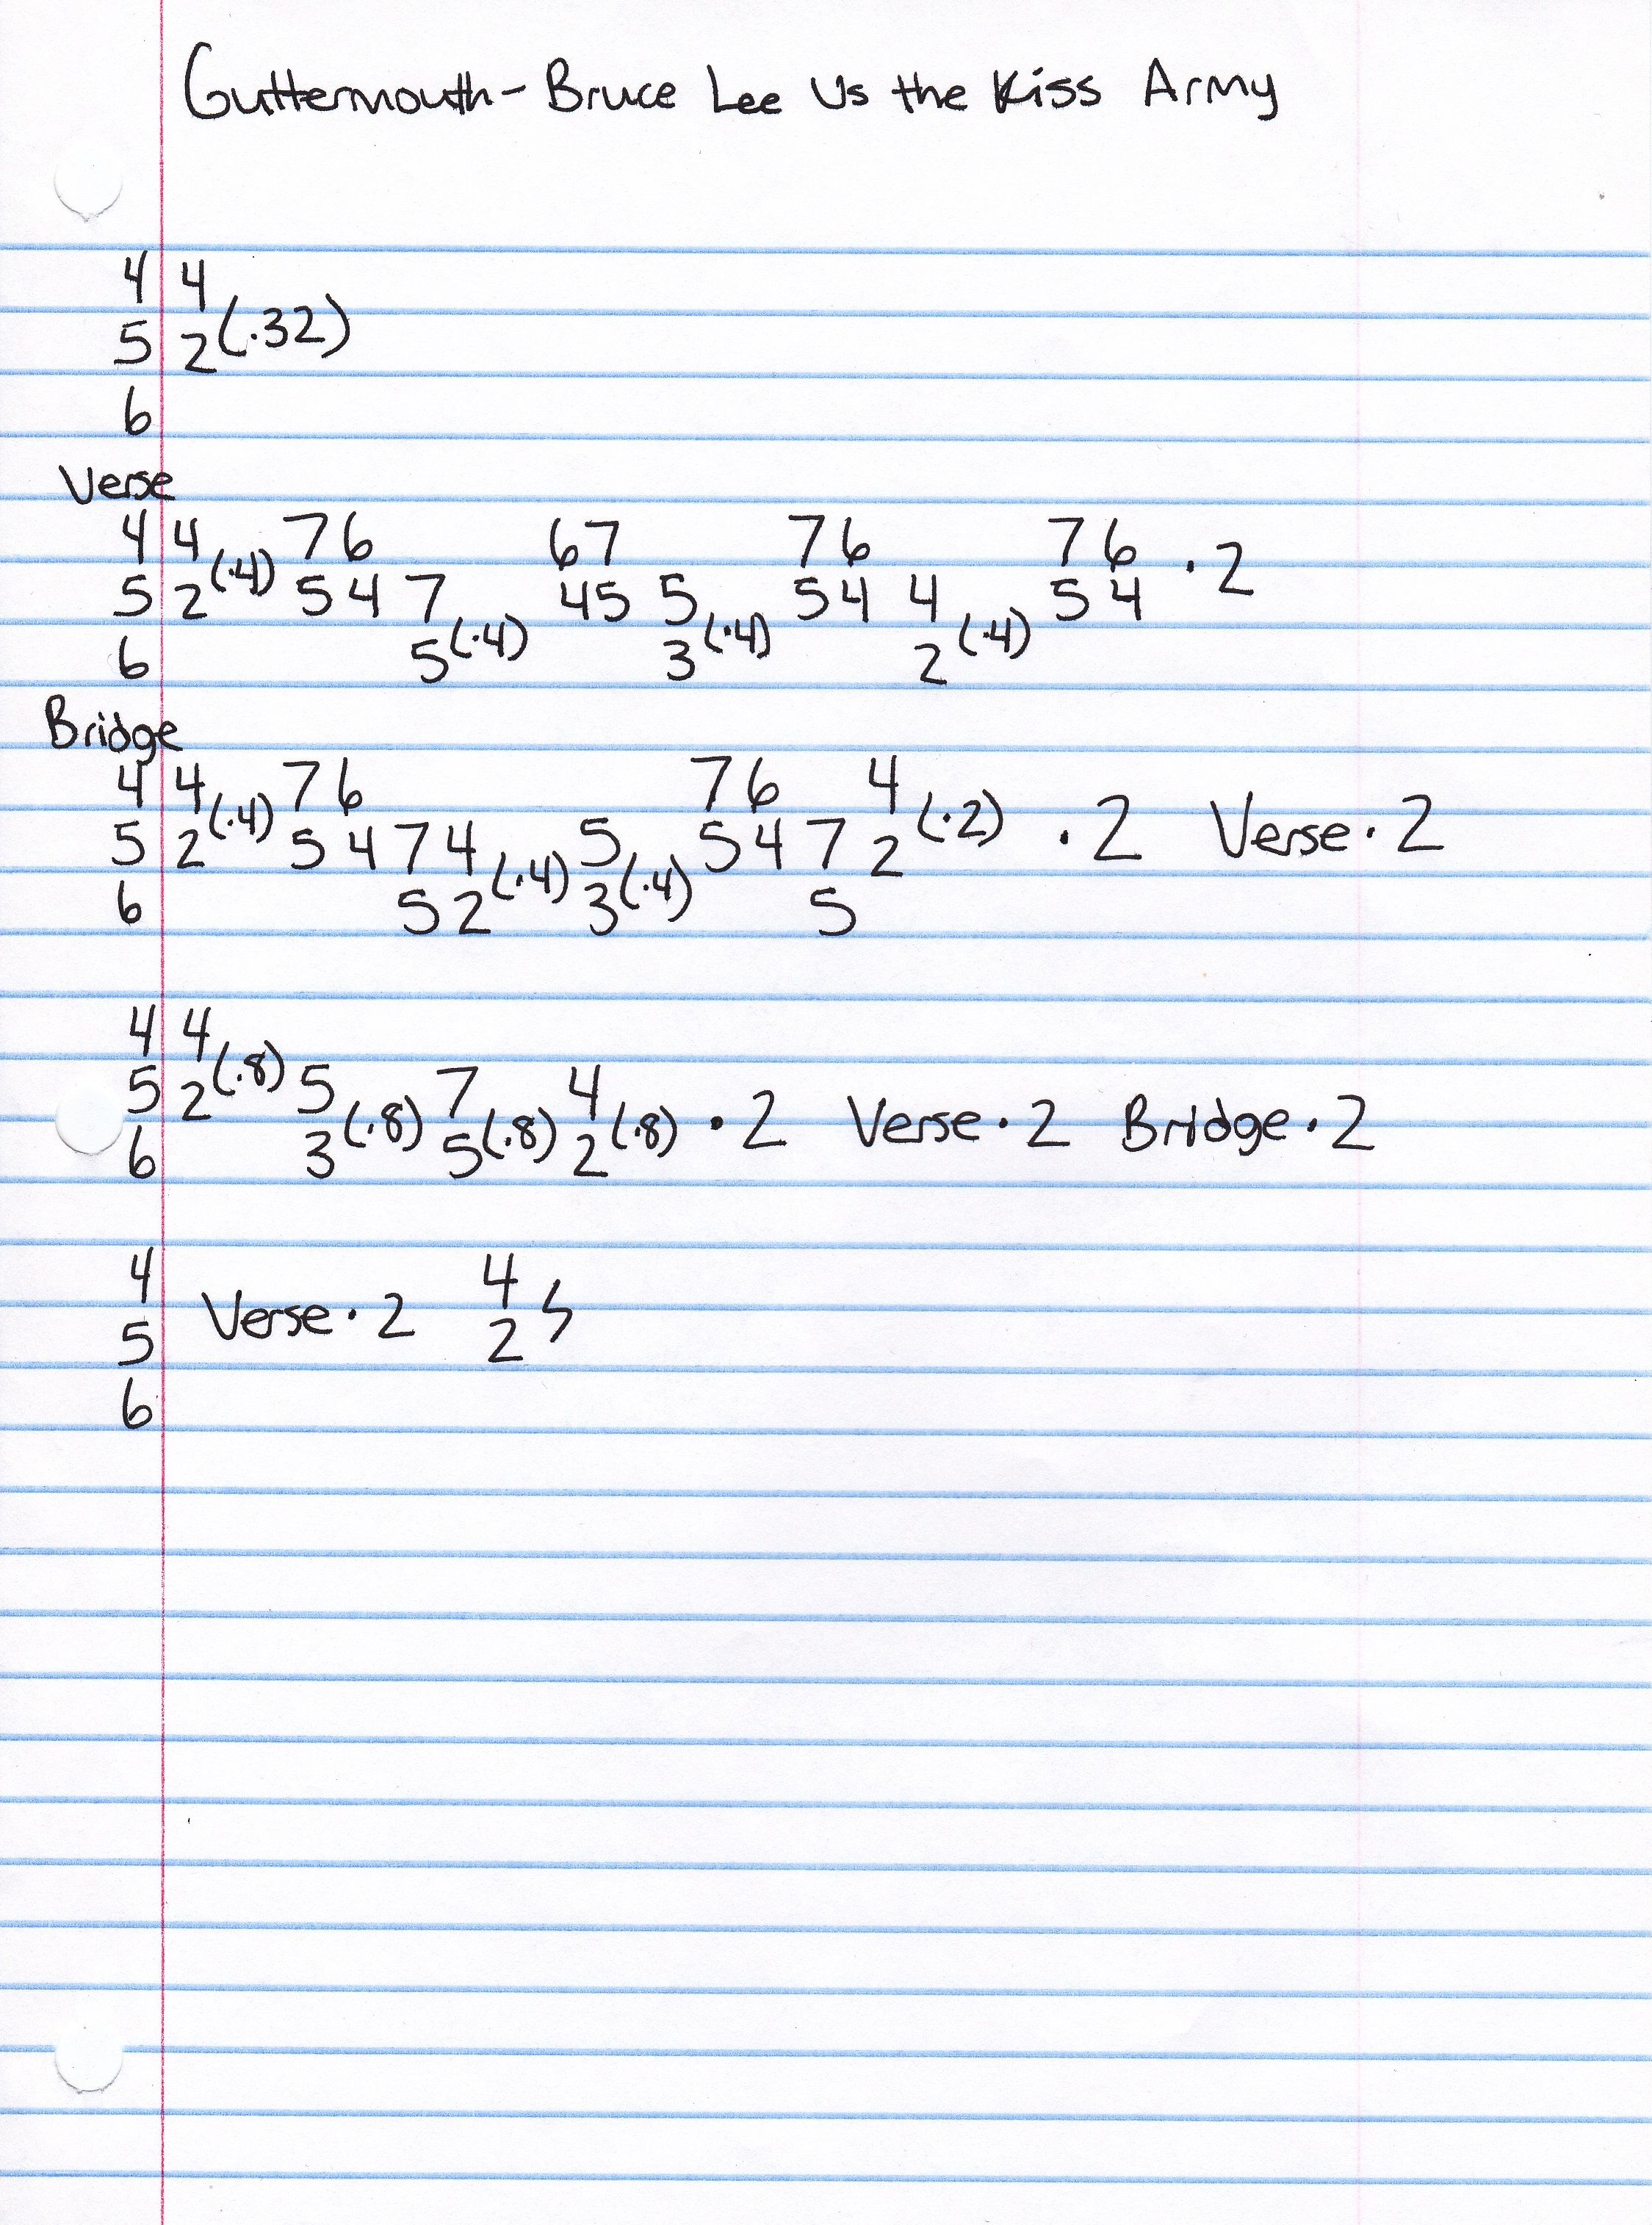 Guttermouth - Bruce Lee Vs the Kiss Army
4 4
5 2 (·32)
6
Verse
4 4 7 6 6 7 7 6 7 6
5 2 (·4) 5 4 7 4 5 5 5 4 4 5 4 · 2
6 5 (·4) 3 (·4) 2 (·4)
Bridge
4 4 7 6 7 6 4
5 2 (·4) 5 4 7 4 5 5 4 7 2 (·2) · 2 Verse · 2
6 5 2 (·4) 3 (·4) 5
4 4
5 2 (·8) 5 7 4
6 3 (·8) 5 (·8) 2 (·8) · 2 Verse · 2 Bridge · 2
4 4
5 Verse · 2 2
6